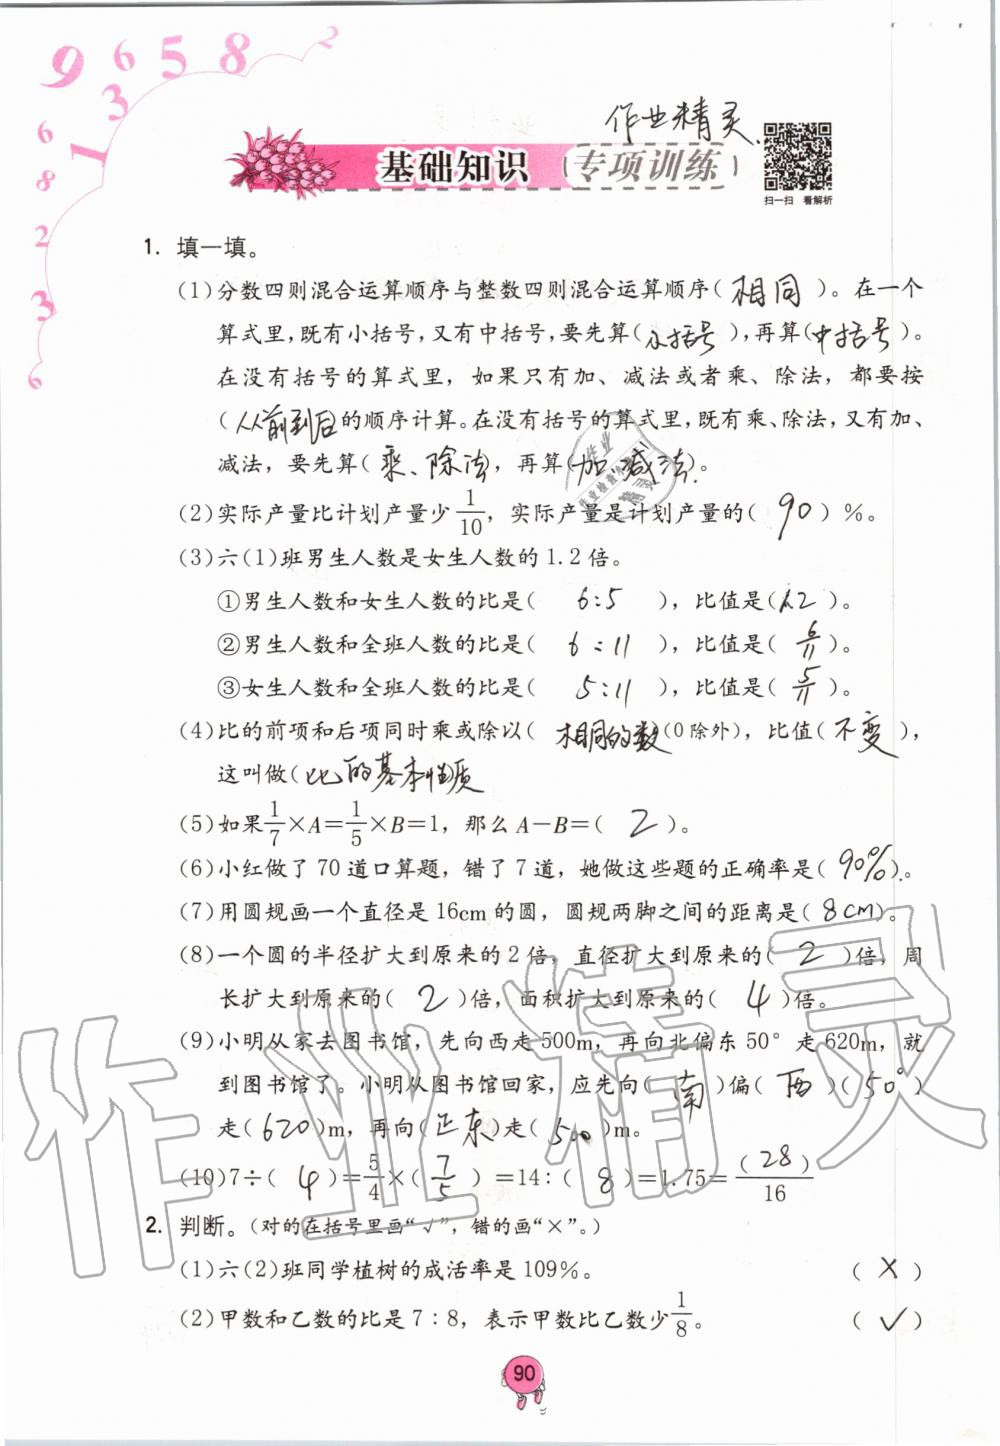 9 6 5 8 2
1 3
6
8
2
3
6
作业精灵
基础知识 专项训练
扫一扫 看解析
1. 填一填。
(1)分数四则混合运算顺序与整数四则混合运算顺序( 相同 )。在一个
算式里,既有小括号,又有中括号,要先算(小括号),再算(中括号)。
在没有括号的算式里，如果只有加、减法或者乘、除法，都要按
(从前到后的顺序计算。在没有括号的算式里,既有乘、除法,又有加、
减法，要先算( 乘、除法)，再算(加、减法)。
(2)实际产量比计划产量少1/10，实际产量是计划产量的( 90 )%。
(3)六(1)班男生人数是女生人数的1.2倍。
①男生人数和女生人数的比是( 6:5 )，比值是(1.2)。
②男生人数和全班人数的比是( 6:11 )，比值是( 6/11 )。
③女生人数和全班人数的比是( 5:11 )，比值是( 5/11 )。
(4)比的前项和后项同时乘或除以( 相同的数(0除外)，比值( 不变 )，
这叫做(比的基本性质
(5)如果1/7×A=1/5×B=1，那么A-B=( 2 )。
(6)小红做了70道口算题，错了7道，她做这些题的正确率是( 90% )。
(7)用圆规画一个直径是16cm的圆，圆规两脚之间的距离是( 8cm )。
(8)一个圆的半径扩大到原来的2倍，直径扩大到原来的( 2 )倍，周
长扩大到原来的( 2 )倍，面积扩大到原来的( 4 )倍。
(9)小明从家去图书馆，先向西走500m，再向北偏东50°走620m，就
到图书馆了。小明从图书馆回家，应先向( 南 )偏( 西 )( 50° )
走( 620 )m，再向( 正东 )走( 500 )m。
(10)7÷( 4 )=5/4×( 7/5 )=14:( 8 )=1.75=(28)/16
2. 判断。(对的在括号里画“√”，错的画“×”。)
(1)六(2)班同学植树的成活率是109%。 ( × )
(2)甲数和乙数的比是7:8，表示甲数比乙数少1/8。 ( √ )
90
作业精灵